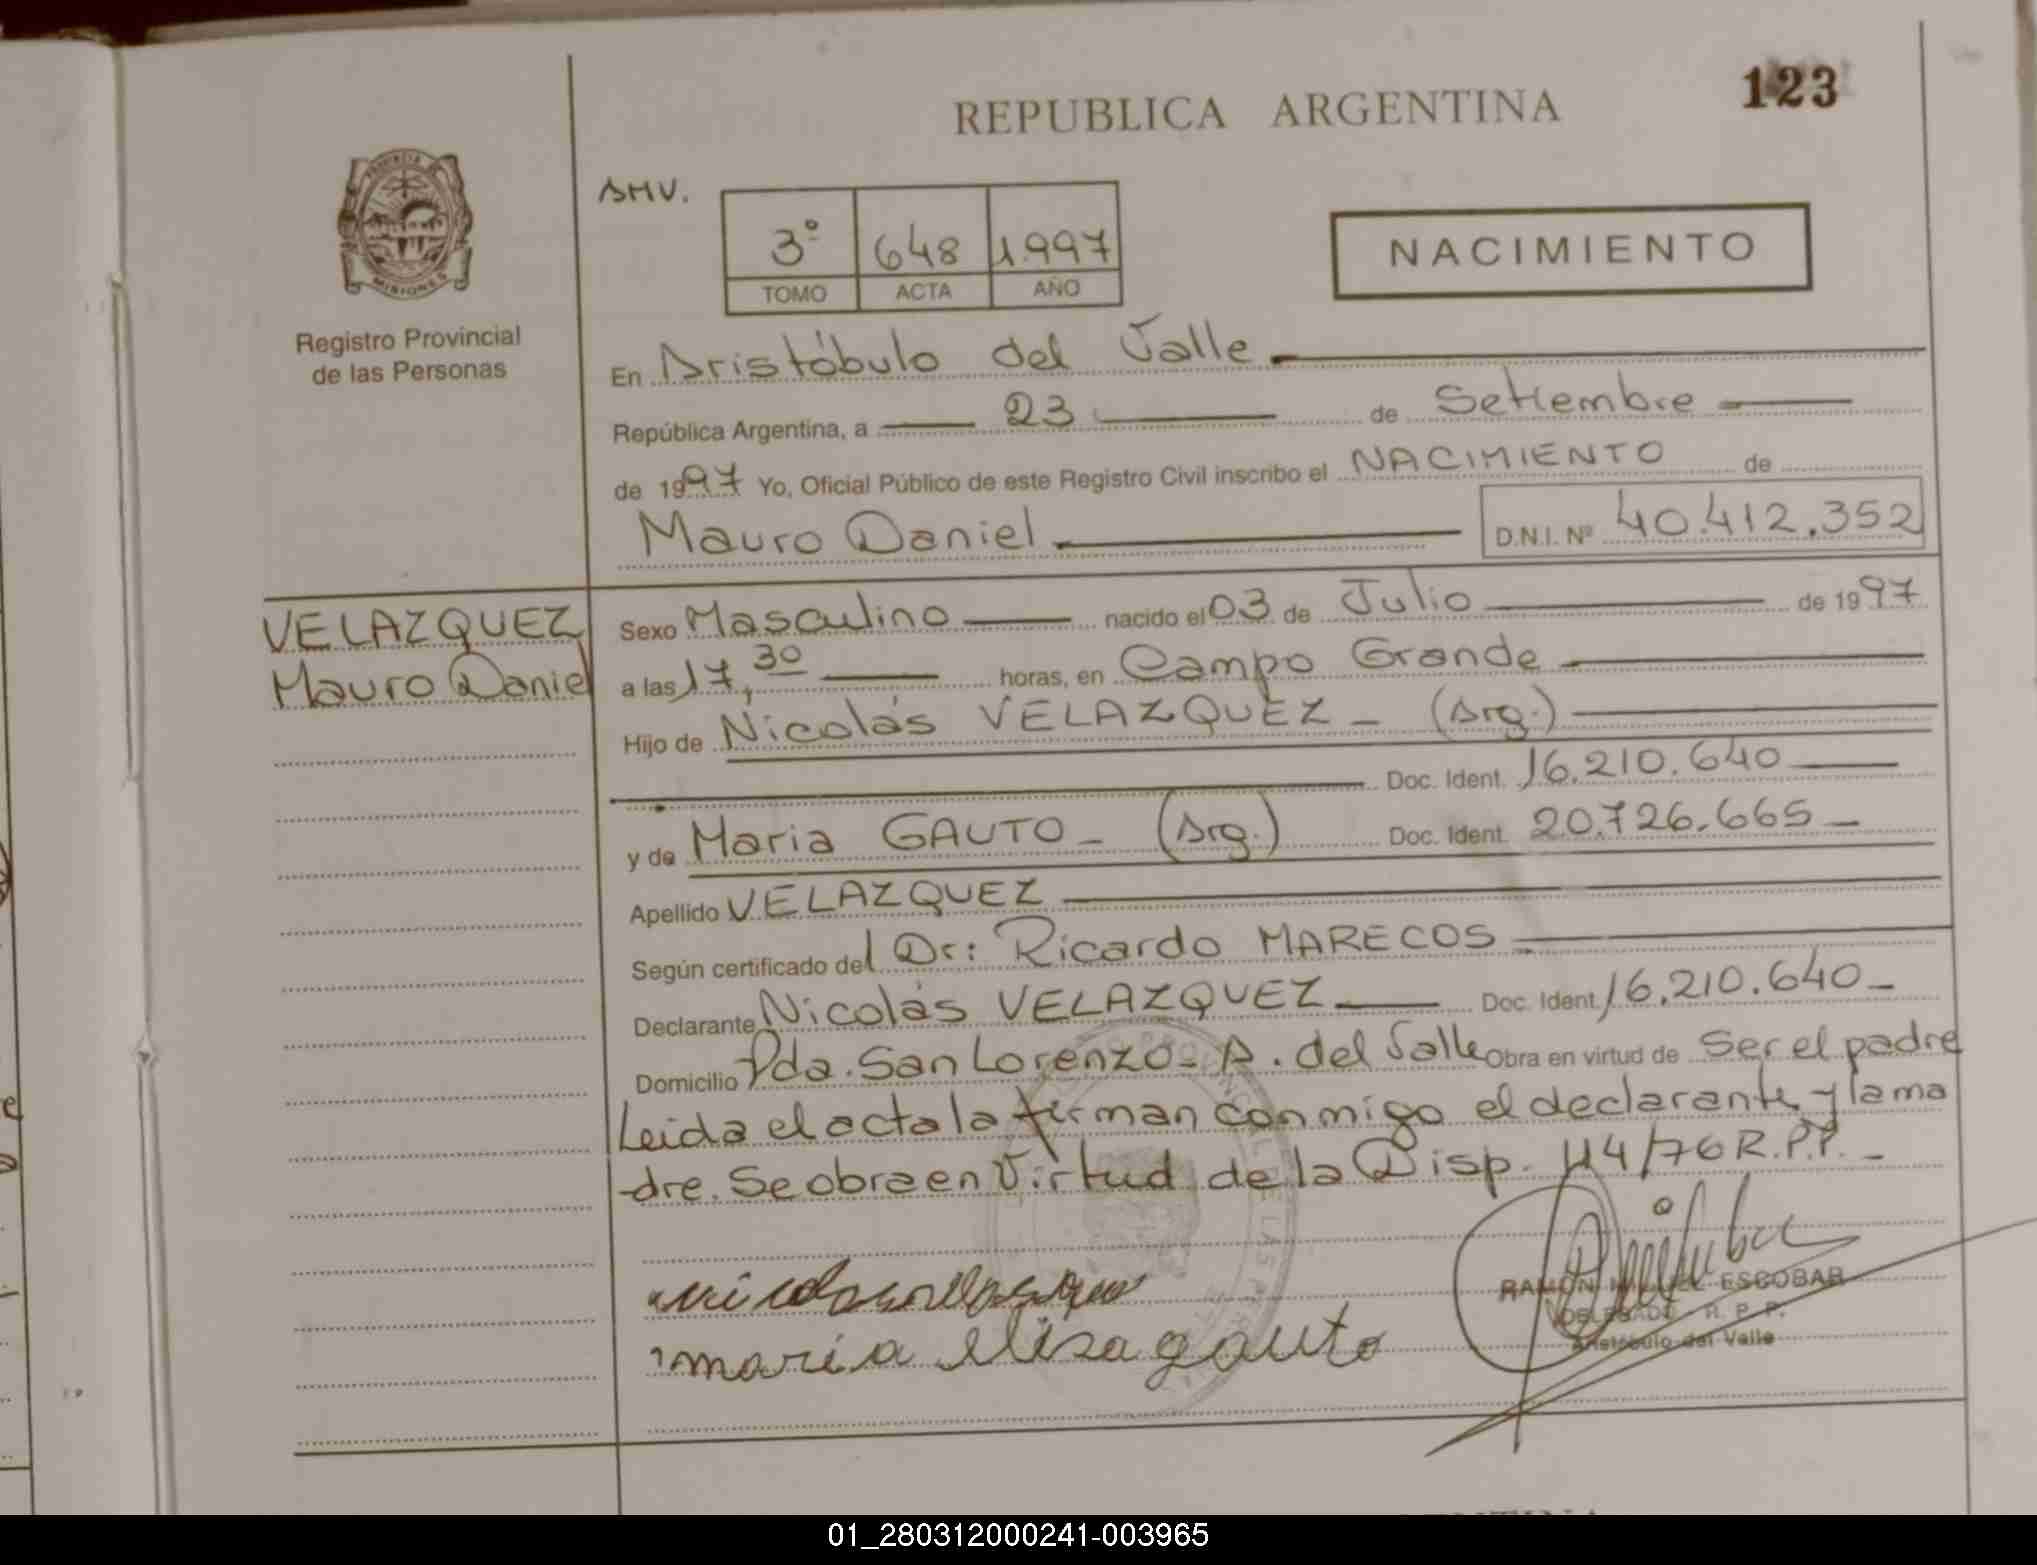 REPUBLICA ARGENTINA
123
PROVINCIA DE
MISIONES
Registro Provincial
de las Personas
AMV.
3º 648 1.997
TOMO ACTA AÑO
NACIMIENTO
En Aristóbulo del Valle
República Argentina, a 23 de Setiembre
de 1997 Yo, Oficial Público de este Registro Civil inscribo el NACIMIENTO de
Mauro Daniel D.N.I. Nº 40.412.352
VELAZQUEZ
Mauro Daniel
Sexo Masculino nacido el 03 de Julio de 1997
a las 17,30 horas, en Campo Grande
Hijo de Nicolás VELAZQUEZ - (Arg.)
Doc. Ident. 16.210.640
y de Maria GAUTO - (Arg.) Doc. Ident. 20.726.665 -
Apellido VELAZQUEZ
Según certificado del Dr: Ricardo MARECOS
Declarante Nicolás VELAZQUEZ Doc. Ident. 16.210.640 -
Domicilio Pda. San Lorenzo - A. del Valle Obra en virtud de Ser el padre
Leida el acta la firman conmigo el declarante y la ma
dre. Se obra en Virtud de la Disp. 114/76 R.P.P. -
maria elisa gauto
RAMON MIGUEL ESCOBAR
DELEGADO R. P. P.
Aristóbulo del Valle
01_280312000241-003965